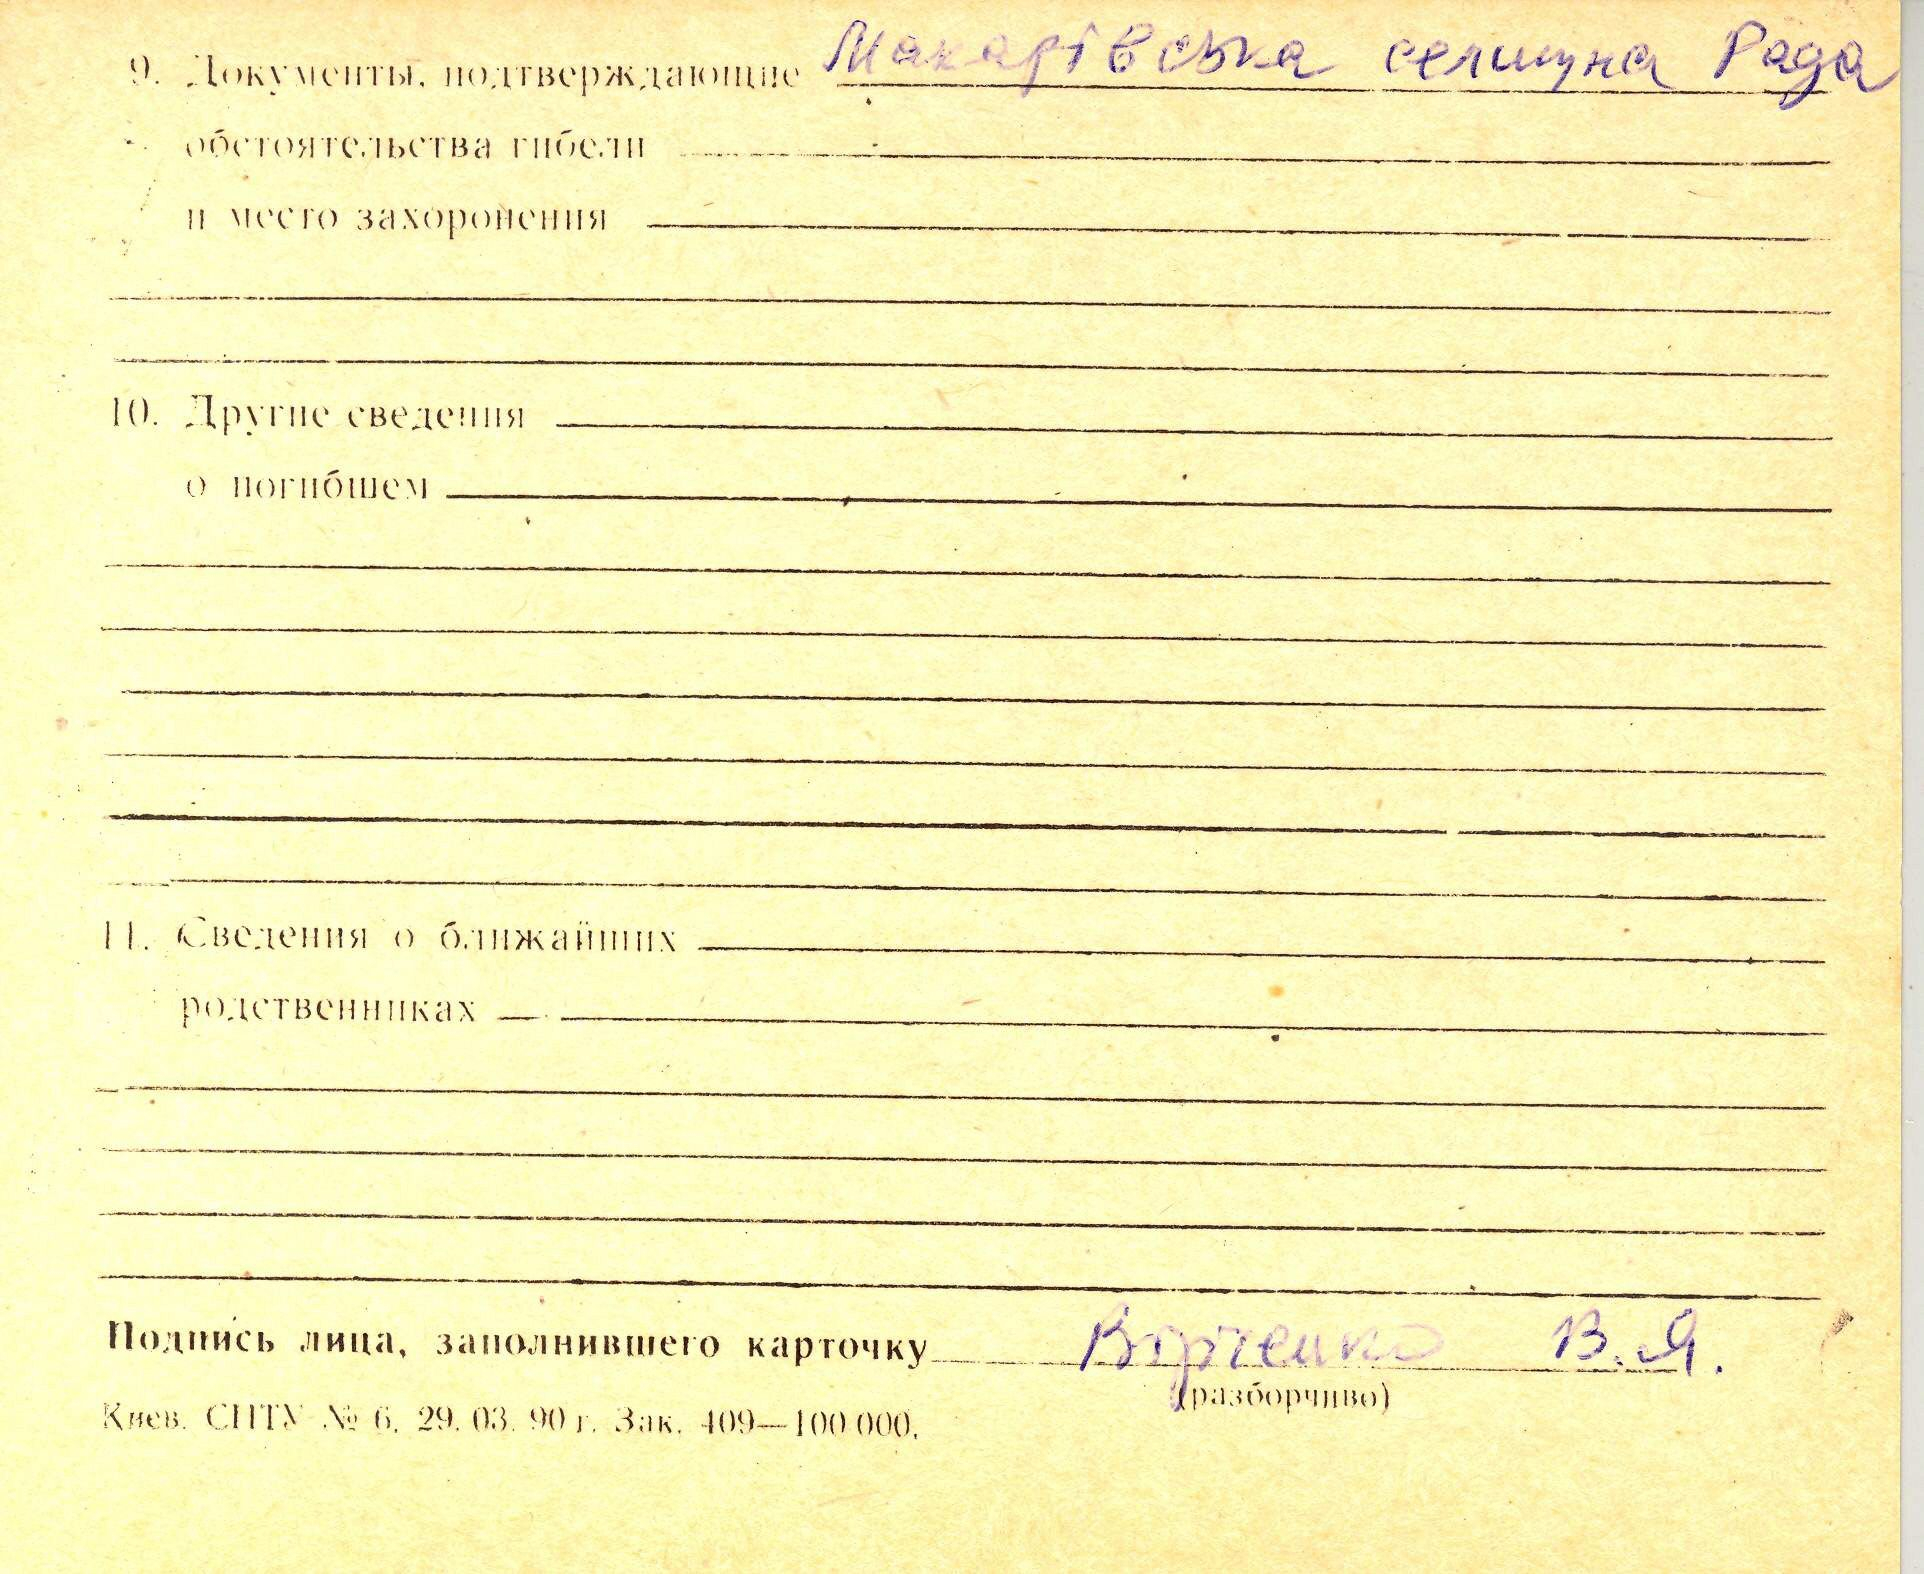 9. Документы, подтверждающие Макарівська селищна Рада
обстоятельства гибели
и место захоронения
10. Другие сведения
о погибшем
11. Сведения о ближайших
родственниках
Подпись лица, заполнившего карточку В.Я.
(разборчиво)
Киев. СПТУ № 6. 29. 03. 90 г. Зак. 409—100 000.